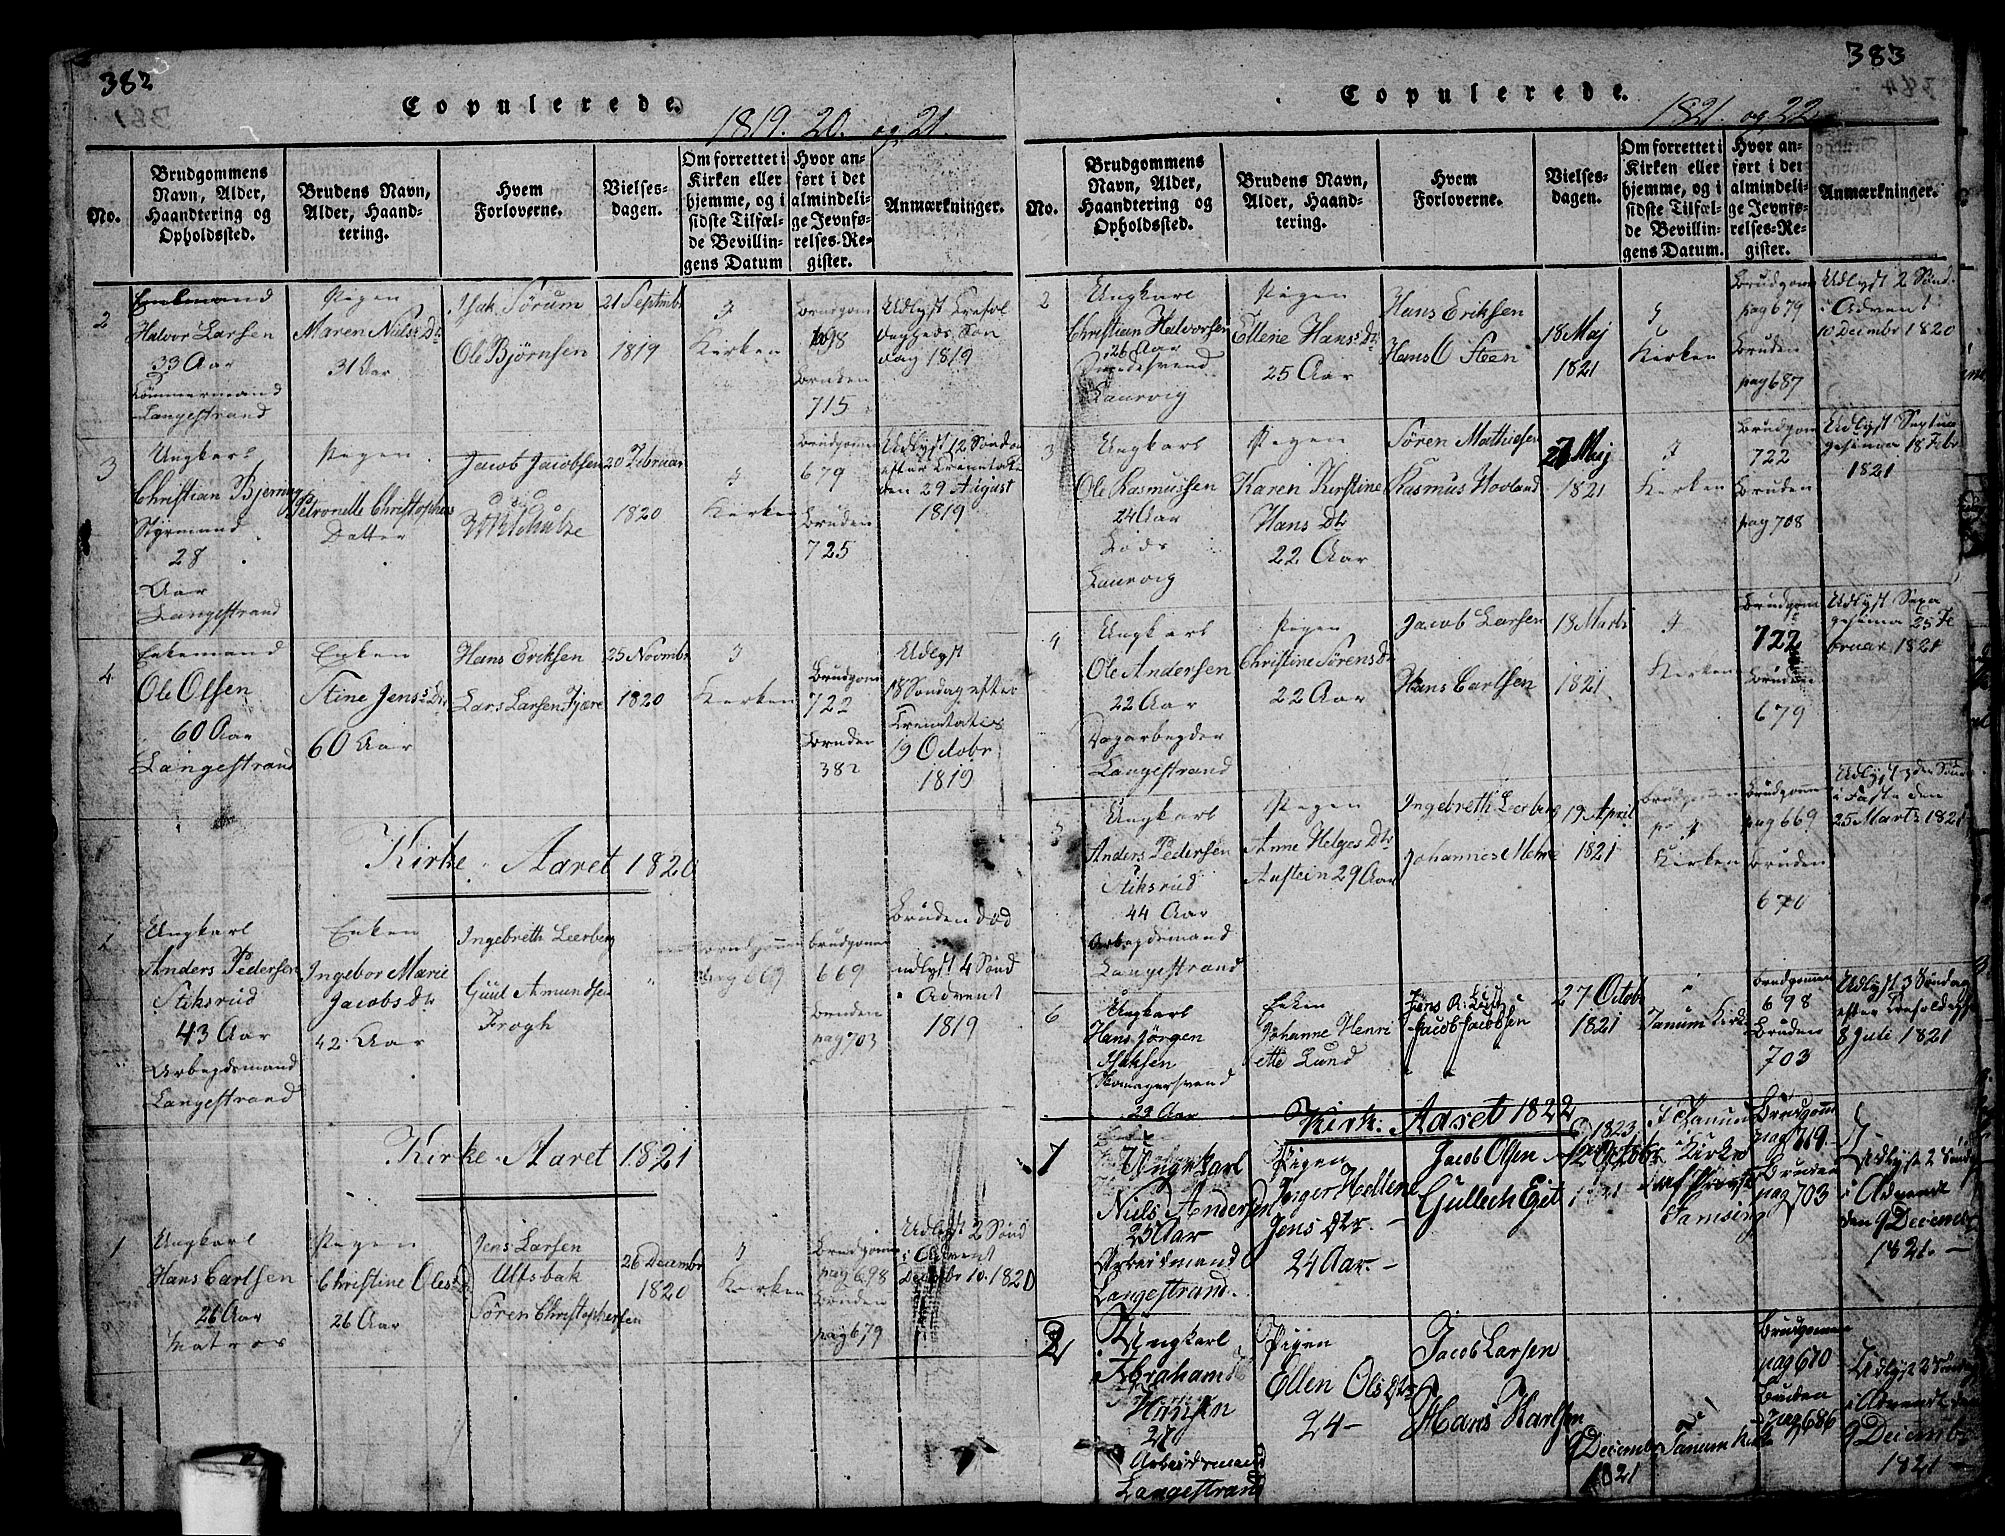 382
Copulerede.
1819. 20. og 21.
No.
Brudgommens Navn, Alder, Haandtering og Opholdssted.
Brudens Navn, Alder, Haandtering.
Hvem Forloverne.
Vielsesdagen.
Om forrettet i Kirken eller hjemme, og i sidste Tilfælde Bevillingens Datum
Hvor anført i det almindelige Jevnførelses-Register.
Anmærkninger.
2
Halvor Larsen
33 Aar
Tømmermand
Langestrand
Pigen
Maren Niels Dr
31 Aar
Isak Sørum
Ole Bjørnsen
21 Septmbr
1819
I
Kirken
Brudgom
698
Bruden
715
Udlyst
dag 1819
3
Ungkarl
Christian Bjerring
Styrmand
28
Aar
Langestrand
Pigen
Petronelle Christophers
Datter
Jacob Jacobsen
Schultze
20 Februar
1820
I
Kirken
Brudgom
679
Bruden
725
Udlyst 12 Søndag
efter Trinitatis
den 29 August
1819
4
Enkemand
Ole Olsen
60 Aar
Langestrand
Enken
Stine Jens Dr
60 Aar
Hans Eriksen
Lars Larsen Fjære
25 Novmbr
1820
I
Kirken
Brudgom
722
Bruden
382
Udlyst
18 Søndag efter
Trinitatis
19 Octobr
1819
Kirke-Aaret 1820
1
Ungkarl
Anders Pedersen
Stiksrud
43 Aar
Arbeydsmand
Langestrand
Enken
Ingebor Marie
Jacobs Dtr
42 Aar
Ingebreth Leerberg
Guul Amundsen
Frogh
"
pag 669
Brudgom
669
Bruden
pag 703
Bruden død
udlyst 4 Sønd
i Advent
1819
Kirke-Aaret 1821
1
Ungkarl
Hans Carlsen
26 Aar
Matros
Pigen
Christine Oles Dr
26 Aar
Jens Larsen
Ultsbak
Søren Christophersen
26 Decembr
1820
I
Kirken
Brudgom
pag 698
Bruden
pag 679
Udlyst 2 Sønd
i Advent
Decbr 10. 1820
383
Copulerede.
1821 og 22
No.
Brudgommens Navn, Alder, Haandtering og Opholdssted.
Brudens Navn, Alder, Haandtering.
Hvem Forloverne.
Vielsesdagen.
Om forrettet i Kirken eller hjemme, og i sidste Tilfælde Bevillingens Datum.
Hvor anført i det almindelige Jevnførelses-Register.
Anmærkninger.
2
Ungkarl
Christian Halvorsen
26 Aar
Laurvig
Pigen
Ellene Hans Dr
25 Aar
Hans Eriksen
Hans O Steen
18 Maj
1821
I
Kirken
Brudgom
pag 679
Bruden
pag 687
Udlyst 2 Sønd.
i Advent
10 Decmbr 1820
3
Ungkarl
Ole Rasmussen
24 Aar
Lods
Laurvig
Pigen
Karen Kirstine
Hans Dtr
22 Aar
Søren Mathiesen
Rasmus Hovland
27 Maj
1821
I
Kirken
Brudgom
722
Bruden
pag 708
Udlyst Septua
gesima 18 Febr
1821
4
Ungkarl
Ole Andersen
22 Aar
Dagarbeyder
Langestrand
Pigen
Christine Sørens Dr
22 Aar
Jacob Larsen
Hans Carlsen
18 Marts
1821
I
Kirken
Brudgom
722
Bruden
679
Udlyst Sexa
gesima 25 Fe
bruar 1821
5
Ungkarl
Anders Pedersen
Stiksrud
44 Aar
Arbeydsmand
Langestrand
Pigen
Anne Helges Dtr
Austein 29 Aar
Ingebreth Leerberg
Johannes Mehre
19 April
1821
I
Kirken
Brudgom
pag 669
Bruden
670
Udlyst 3den Sønd
i Faste den
25 Marts 1821
6
Ungkarl
Hans Jørgen
Isaksen
29 Aar
Enken
Johanne Henri
ette Lund
Jens R. Lund
Jacob Jacobsen
27 Octobr
1821
"
Tanum Kirke
Brudgommen
698
Bruden
703
Udlyst 3 Søndag
8 Juli 1821
Kirk. Aaret 1822
1
Ungkarl
Niels Andersen
25 Aar
Arbeidsmand
Langestrand.
Pigen
Inger Hellene
Jens dtr. -
24 Aar. -
Jacob Olsen
Gullech Egit
1823
12 Octobr
1821
I Tanum
Kirke
af Provst
Brudgom
pag 719.
Bruden
pag 703
Udlyst 2 Sønd
i Advendt
den 9 Decembr
1821. -
2
Ungkarl
Abraham
Hansen
27
Arbeidsmand
Langestrand
Pigen
Ellen Ols Dtr
24 -
Jacob Larsen
Hans Karlsen
9 Decembr
1821
Tanum Kirke
Brudgommen
pag 670
Bruden
pag 686
Udlyst 2 Søndag
i Advendt den
9 Decembr
1821 -